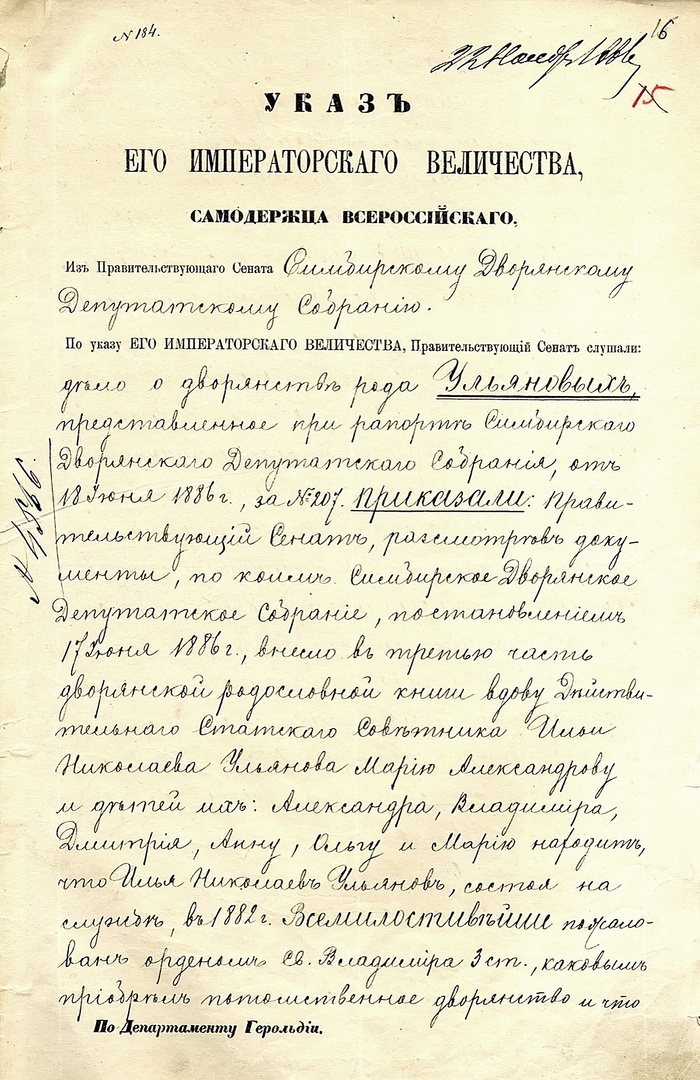 N 184.
16
22 Нояб. 1886
15
УКАЗЪ
ЕГО ИМПЕРАТОРСКАГО ВЕЛИЧЕСТВА,
САМОДЕРЖЦА ВСЕРОССІЙСКАГО,
Изъ Правительствующаго Сената Симбирскому Дворянскому
Депутатскому Собранію.
По указу ЕГО ИМПЕРАТОРСКАГО ВЕЛИЧЕСТВА, Правительствующій Сенатъ слушали:
дѣло о дворянствѣ рода Ульяновыхъ,
представленное при рапортѣ Симбирскаго
Дворянскаго Депутатскаго Собранія, отъ
18 Іюня 1886 г., за № 207. Приказали: Прави-
тельствующій Сенатъ, разсмотрѣвъ доку-
менты, по коимъ Симбирское Дворянское
Депутатское Собраніе, постановленіемъ
17 Іюня 1886 г., внесло въ третью часть
дворянской родословной книги вдову Дѣйстви-
тельнаго Статскаго Совѣтника Ильи
Николаева Ульянова Марію Александрову
и дѣтей ихъ: Александра, Владиміра,
Дмитрія, Анну, Ольгу и Марію находитъ,
что Илья Николаевъ Ульяновъ, состоя на
службѣ, въ 1882 г. Всемилостивѣйше пожало-
ванъ орденомъ Св. Владиміра 3 ст., каковымъ
пріобрѣлъ потомственное дворянство и что
По Департаменту Герольдіи.